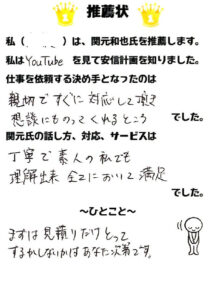 推薦状
私（　　）は、関元和也氏を推薦します。
私はYouTubeを見て安信計画を知りました。
仕事を依頼する決め手となったのは
親切ですぐに対応して頂き
想談にものってくれるところ でした。
関元氏の話し方、対応、サービスは
丁寧で素人の私でも
理解出来 全てにおいて満足
でした。
〜ひとこと〜
まずは見積りだけとって
するかしないかはあなた次第です。